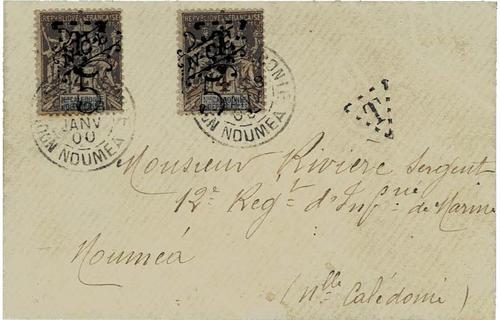 REPUBLIQUE FRANCAISE
REPUBLIQUE FRANCAISE
T
T
5
5
JANV
00
NOUMEA
NOUMEA
T
Monsieur Rivière Sergent
12e Regt d'Infrie de Marine
Nouméa
(Nlle Calédonie)